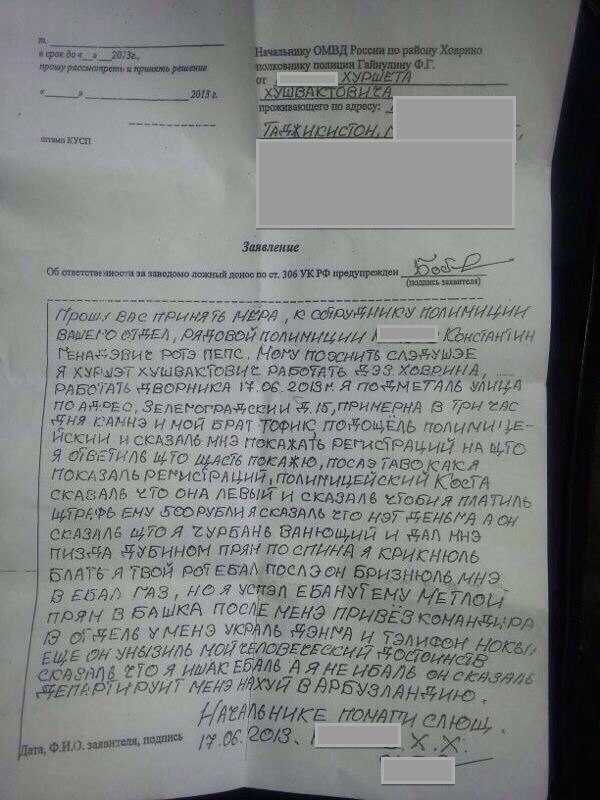 т.
в срок до «__» 2013г.,
прошу рассмотреть и принять решение
«______» ____________________ 2013 г.
штамп КУСП
Начальнику ОМВД России по району Ховрино
полковнику полиция Гайнулину Ф.Г.
от ХУРШЕТА
ХУШВАКТОВИЧА
проживающего по адресу:
ТАДЖИКИСТОН,
Заявление
Об ответственности за заведомо ложный донос по ст. 306 УК РФ предупрежден
(подпись заявителя)
ПРОШУ ВАС ПРИНЯТЬ МЕРА, К СОТРУДНИКУ ПОЛИМИЦИИ
ВАШЕГО ОТДЕЛ, РЯДОВОЙ ПОЛИМИЦИИ КОНСТАНТИН
ГЕНАДЭВИЧ РОТЭ ПЕПС. МОМУ ПОЭСНИТЬ СЛЭДУШЭЕ
Я ХУРШЭТ ХУШВАКТОВИЧ РАБОТАТЬ ДЭЗ ХОВРИНА,
РАБОТАТЬ ДВОРНИКА 17.06.2013М. Я ПОДМЕТАЛЬ УЛИЦА
ПО АДРЕС, ЗЕЛЕМОГРАДСКИЙ Д.15, ПРИМЕРНА В ТРИ ЧАС
ДНЯ КАМНЭ И МОЙ БРАТ ТОФИК ПОДОЩЁЛЬ ПОЛИМИЦЕ-
ЙСКИЙ И СКАЗАЛЬ МНЭ ПОКАЖАТЬ РЕГИСТРАЦИЙ НА ЩТО
Я ОТВЕТИЛЬ ЩТО ЩАСТЬ ПОКАЖЮ, ПОСЛЭ ТАВО КАК Я
ПОКАЗАЛЬ РЕМИСТРАЦИЙ, ПОЛИМИЦЕЙСКИЙ КОСТА
СКАЗАЛЬ ЧТО ОНА ЛЕВЫЙ И СКАЗАЛЬ ЧТОБИ Я ПЛАТИЛЬ
ЩТРАФЬ ЕМУ 500 РУБЛИ Я СКАЗАЛЬ ЧТО НЭТ ДЕНЬГА А ОН
СКАЗАЛЬ ЩТО Я ЧУРБАНЬ ВАНЮЩИЙ И ДАЛ МНЭ
ПИЗДА ДУБИНОМ ПРЯМ ПО СПИНА Я КРИКНЮЛЬ
БЛАТЬ Я ТВОЙ РОТ ЕБАЛ ПОСЛЭ ОН БРИЗНЮЛЬ МНЭ
В ЕБАЛ ГАЗ, НО Я УСПЭЛ ЕБАНУТ ЕМУ МЕТЛОЙ
ПРЯМ В БАШКА ПОСЛЕ МЕНЭ ПРИВЁЗ КОМАНДИРА
В ОТДЕЛЬ У МЕНЭ УКРАЛЬ ДЭНГА И ТЭЛИФОН НОКЫ
ЕЩЕ ОН УНЫЗИЛЬ МОЙ ЧЕЛОВЕЧЕСКИЙ ДОСТОИНСТВ
СКАЗАЛЬ ЧТО Я ИШАК ЕБАЛЬ А Я НЕ ИБАЛЬ ОН СКАЗАЛЬ
ДЕПАРТИРУИТ МЕНЭ НАХУЙ В АРБУЗЛАНДИЮ.
НАЧАЛЬНИКЕ ПОМАГИ СЛЮЩ.
Дата, Ф.И.О. заявителя, подпись
17.06.2013. Х.Х.